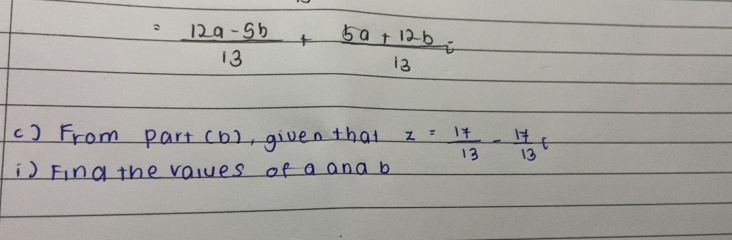 = 12a - 5b / 13 + 5a + 12b / 13 i
c) From part (b), given that z = 17/13 - 17/13 i
i) Find the values of a and b